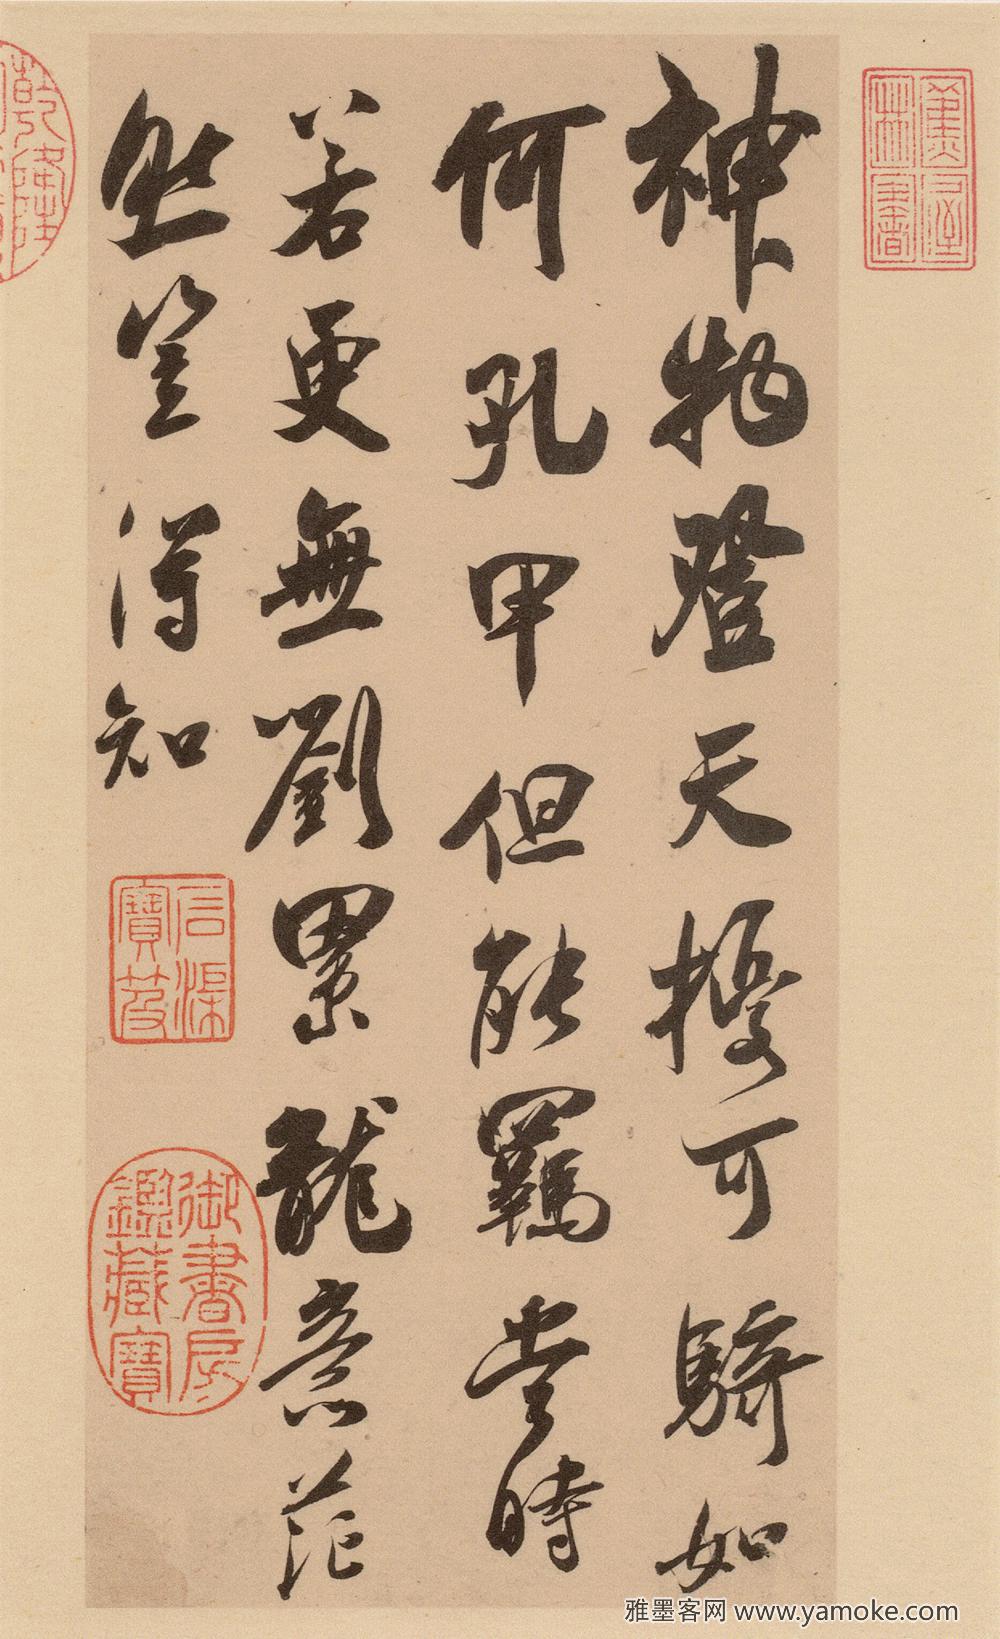 神物登天擾可騎如
何孔甲但能羈當時
若更無劉累龍意茫
然豈得知
乾隆
石渠寶笈
御書房鑑藏寶
雅墨客网 www.yamoke.com